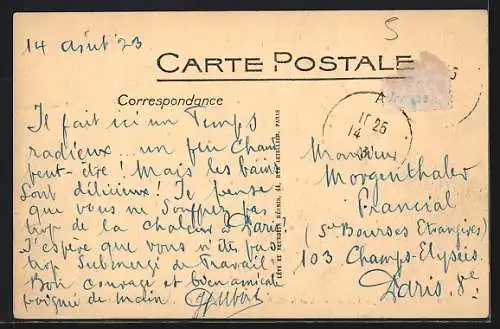 14 Août 23
5
CARTE POSTALE
Correspondance
Il fait ici un Temps
radieux... un peu chaud
peut-être! Mais les bains
Sont délicieux! Je pense
que vous ne Souffrez pas
trop de la chaleur à Paris.
J'espère que vous n'êtes pas
trop Submergé de Travail.
Bon courage et bien amicale
poignée de main.
LÉVY ET NEURDEIN RÉUNIS, 44, RUE LETELLIER, PARIS
11 25
14
Monsieur
Morgenthaler
Financial
(Sce Bourses Etrangères)
103 Champs-Elysées
Paris. 8e